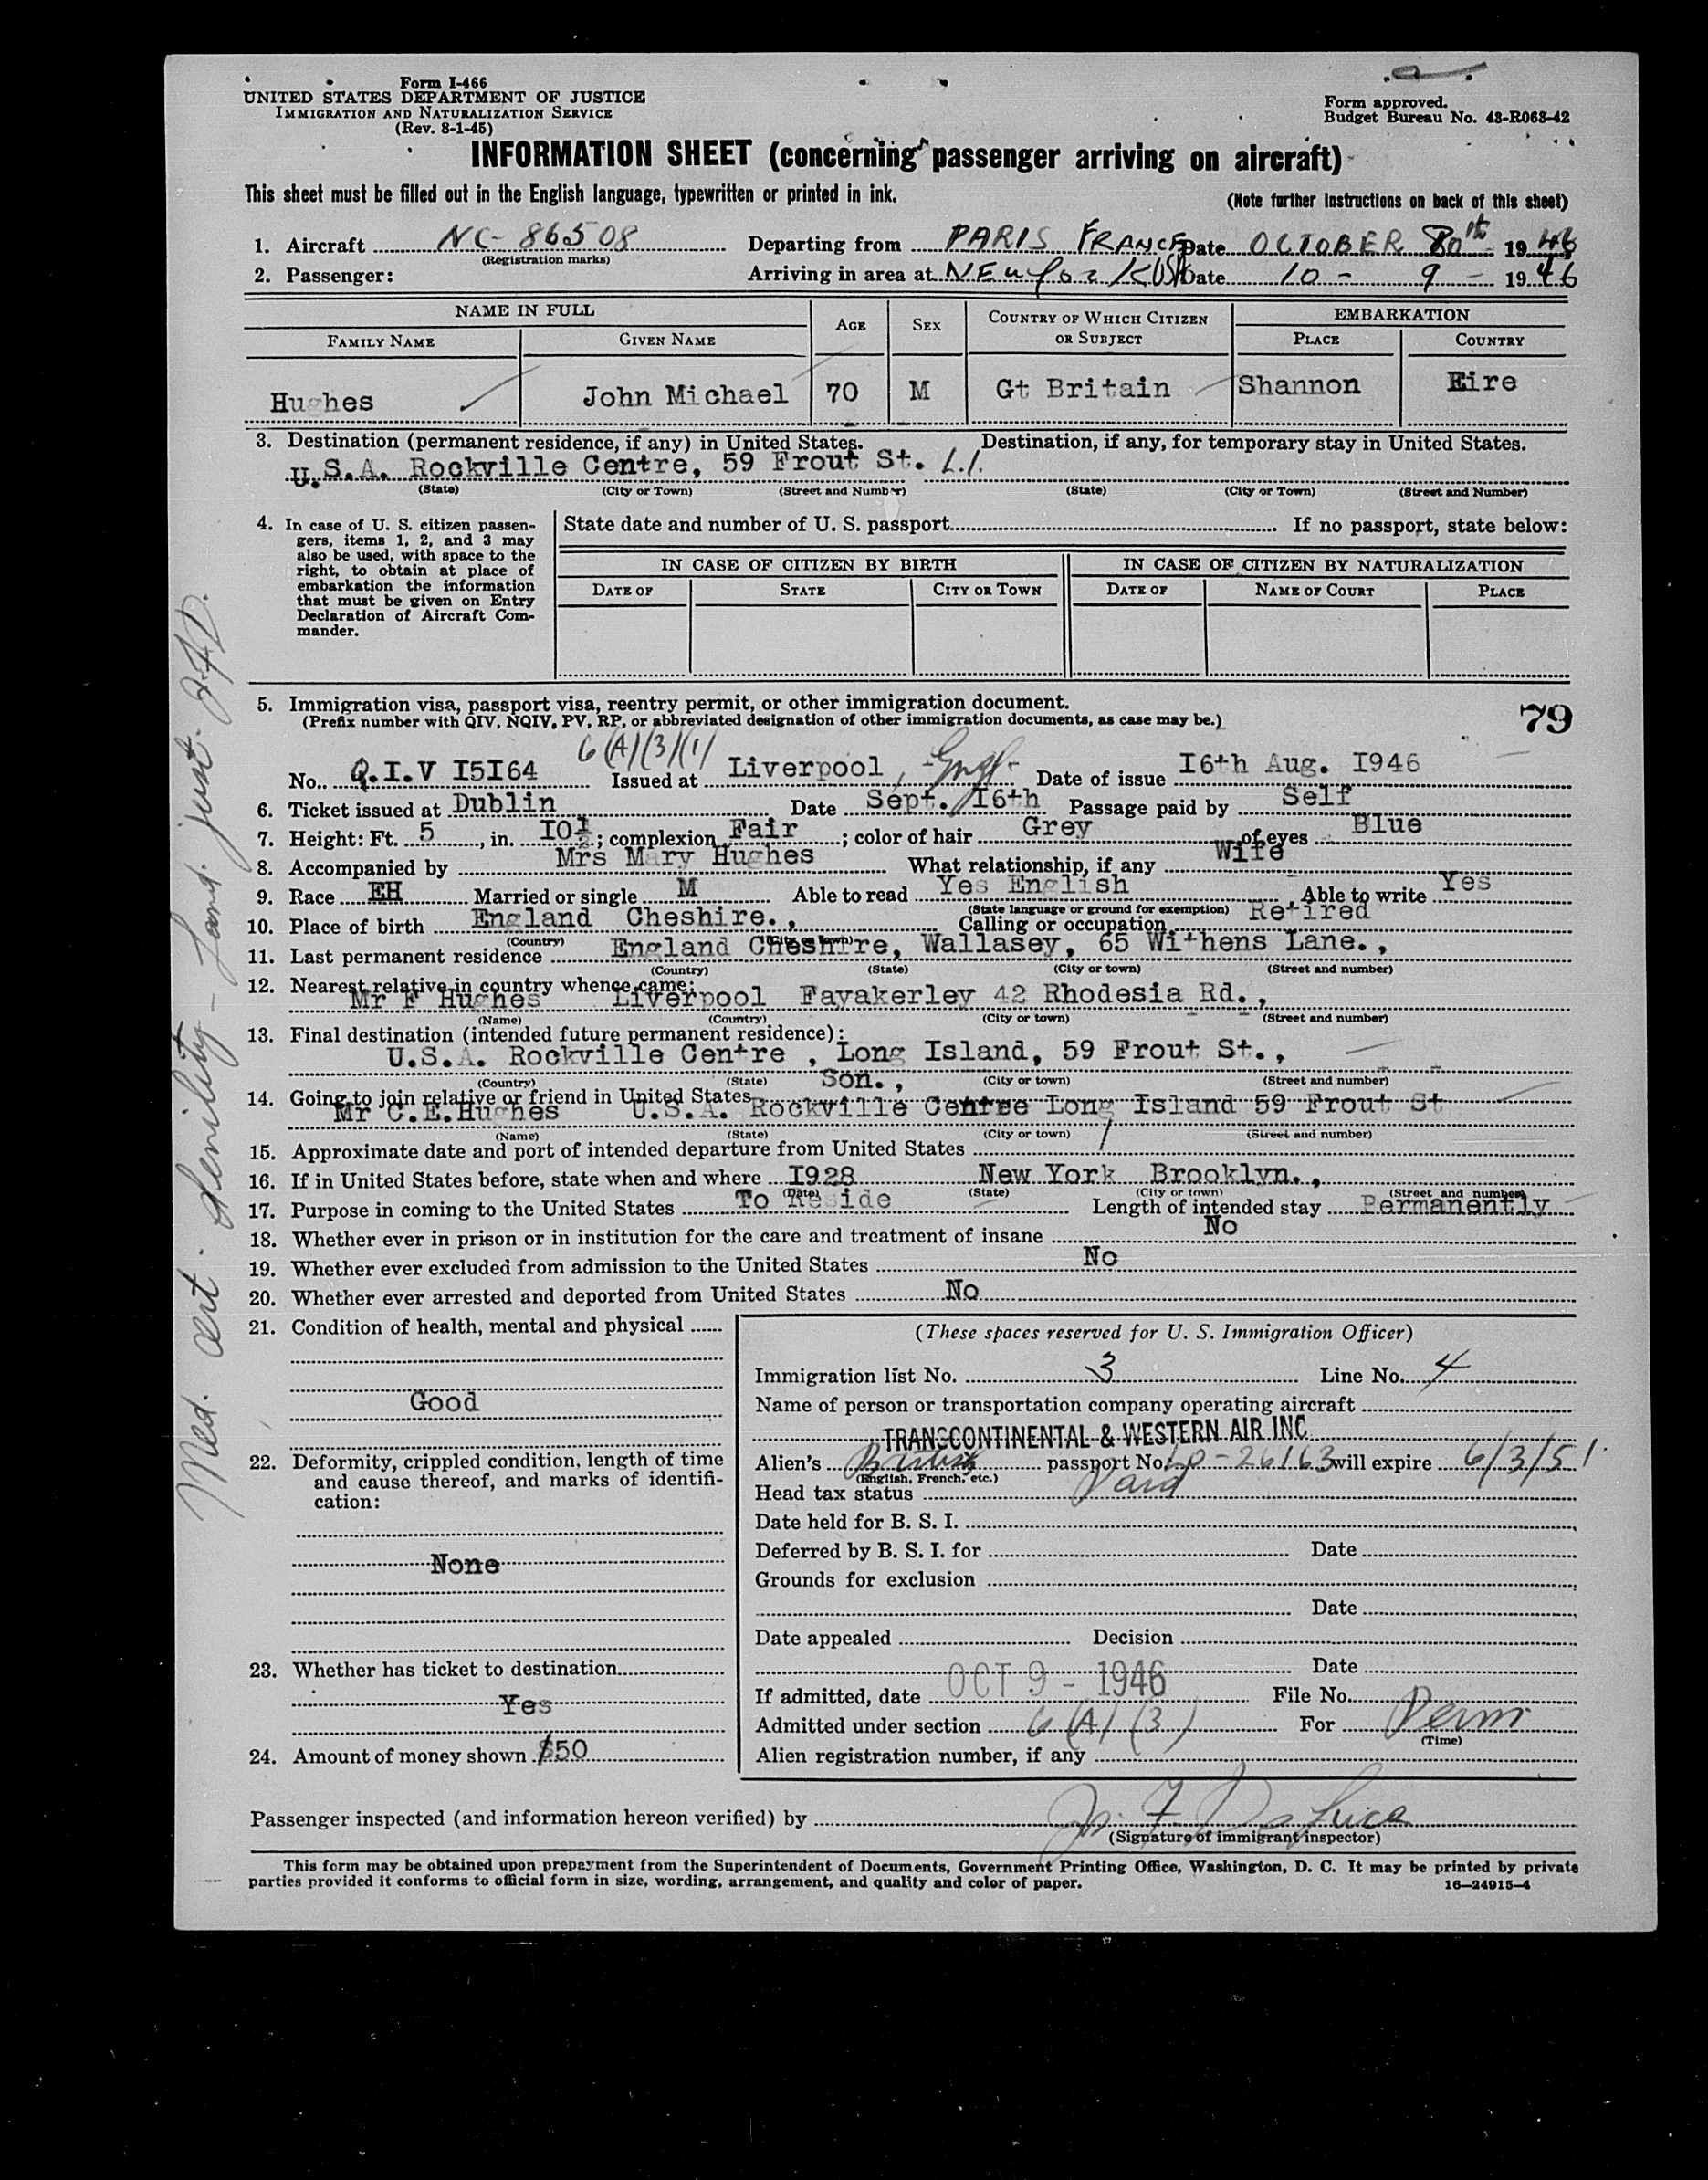 Form I-466
UNITED STATES DEPARTMENT OF JUSTICE
IMMIGRATION AND NATURALIZATION SERVICE
(Rev. 8-1-45)
Form approved.
Budget Bureau No. 43-R063-42
INFORMATION SHEET (concerning passenger arriving on aircraft)
This sheet must be filled out in the English language, typewritten or printed in ink. (Note further instructions on back of this sheet)
1. Aircraft NC-86508 Departing from PARIS FRANCE Date OCTOBER 1946
(Registration marks)
2. Passenger: Arriving in area at New York USA Date 10 - 9 - 1946
NAME IN FULL AGE SEX COUNTRY OF WHICH CITIZEN OR SUBJECT EMBARKATION
FAMILY NAME GIVEN NAME PLACE COUNTRY
Hughes John Michael 70 M Gt Britain Shannon Eire
3. Destination (permanent residence, if any) in United States. Destination, if any, for temporary stay in United States.
U.S.A. Rockville Centre, 59 Frout St. L.I.
(State) (City or Town) (Street and Number) (State) (City or Town) (Street and Number)
4. In case of U. S. citizen passengers, items 1, 2, and 3 may also be used, with space to the right, to obtain at place of embarkation the information that must be given on Entry Declaration of Aircraft Commander.
State date and number of U. S. passport If no passport, state below:
IN CASE OF CITIZEN BY BIRTH IN CASE OF CITIZEN BY NATURALIZATION
DATE OF STATE CITY OR TOWN DATE OF NAME OF COURT PLACE
5. Immigration visa, passport visa, reentry permit, or other immigration document.
(Prefix number with QIV, NQIV, PV, RP, or abbreviated designation of other immigration documents, as case may be.)
79
6(A)(3)(1)
No. Q.I.V I5I64 Issued at Liverpool, Engl. Date of issue I6th Aug. I946
6. Ticket issued at Dublin Date Sept. I6th Passage paid by Self
7. Height: Ft. 5, in. IO½; complexion Fair; color of hair Grey of eyes Blue
8. Accompanied by Mrs Mary Hughes What relationship, if any Wife
9. Race EH Married or single M Able to read Yes English Able to write Yes
(State language or ground for exemption)
10. Place of birth England Cheshire., Calling or occupation Retired
(Country) (City or town)
11. Last permanent residence England Cheshire, Wallasey, 65 Withens Lane.,
(Country) (State) (City or town) (Street and number)
12. Nearest relative in country whence came:
Mr F Hughes Liverpool Fayakerley 42 Rhodesia Rd.,
(Name) (Country) (City or town) (Street and number)
13. Final destination (intended future permanent residence):
U.S.A. Rockville Centre , Long Island, 59 Frout St.,
(Country) (State) (City or town) (Street and number)
Son.,
14. Going to join relative or friend in United States
Mr C.E.Hughes U.S.A. Rockville Centre Long Island 59 Frout St
(Name) (State) (City or town) (Street and number)
15. Approximate date and port of intended departure from United States
16. If in United States before, state when and where I928 New York Brooklyn.,
(Date) (State) (City or town) (Street and number)
17. Purpose in coming to the United States To Reside Length of intended stay Permanently
18. Whether ever in prison or in institution for the care and treatment of insane No
19. Whether ever excluded from admission to the United States No
20. Whether ever arrested and deported from United States No
21. Condition of health, mental and physical
Good
22. Deformity, crippled condition, length of time and cause thereof, and marks of identification:
None
23. Whether has ticket to destination
Yes
24. Amount of money shown $50
(These spaces reserved for U. S. Immigration Officer)
Immigration list No. 3 Line No. 4
Name of person or transportation company operating aircraft
TRANSCONTINENTAL & WESTERN AIR INC
Alien's British passport No. will expire 6/3/51
(English, French, etc.)
Head tax status Paid
Date held for B. S. I.
Deferred by B. S. I. for Date
Grounds for exclusion
Date
Date appealed Decision
Date
If admitted, date OCT 9 - 1946 File No.
Admitted under section 6(A)(3) For Perm
(Time)
Alien registration number, if any
Passenger inspected (and information hereon verified) by
(Signature of immigrant inspector)
This form may be obtained upon prepayment from the Superintendent of Documents, Government Printing Office, Washington, D. C. It may be printed by private
parties provided it conforms to official form in size, wording, arrangement, and quality and color of paper. 16—24915-4
Med. cert. Senility -